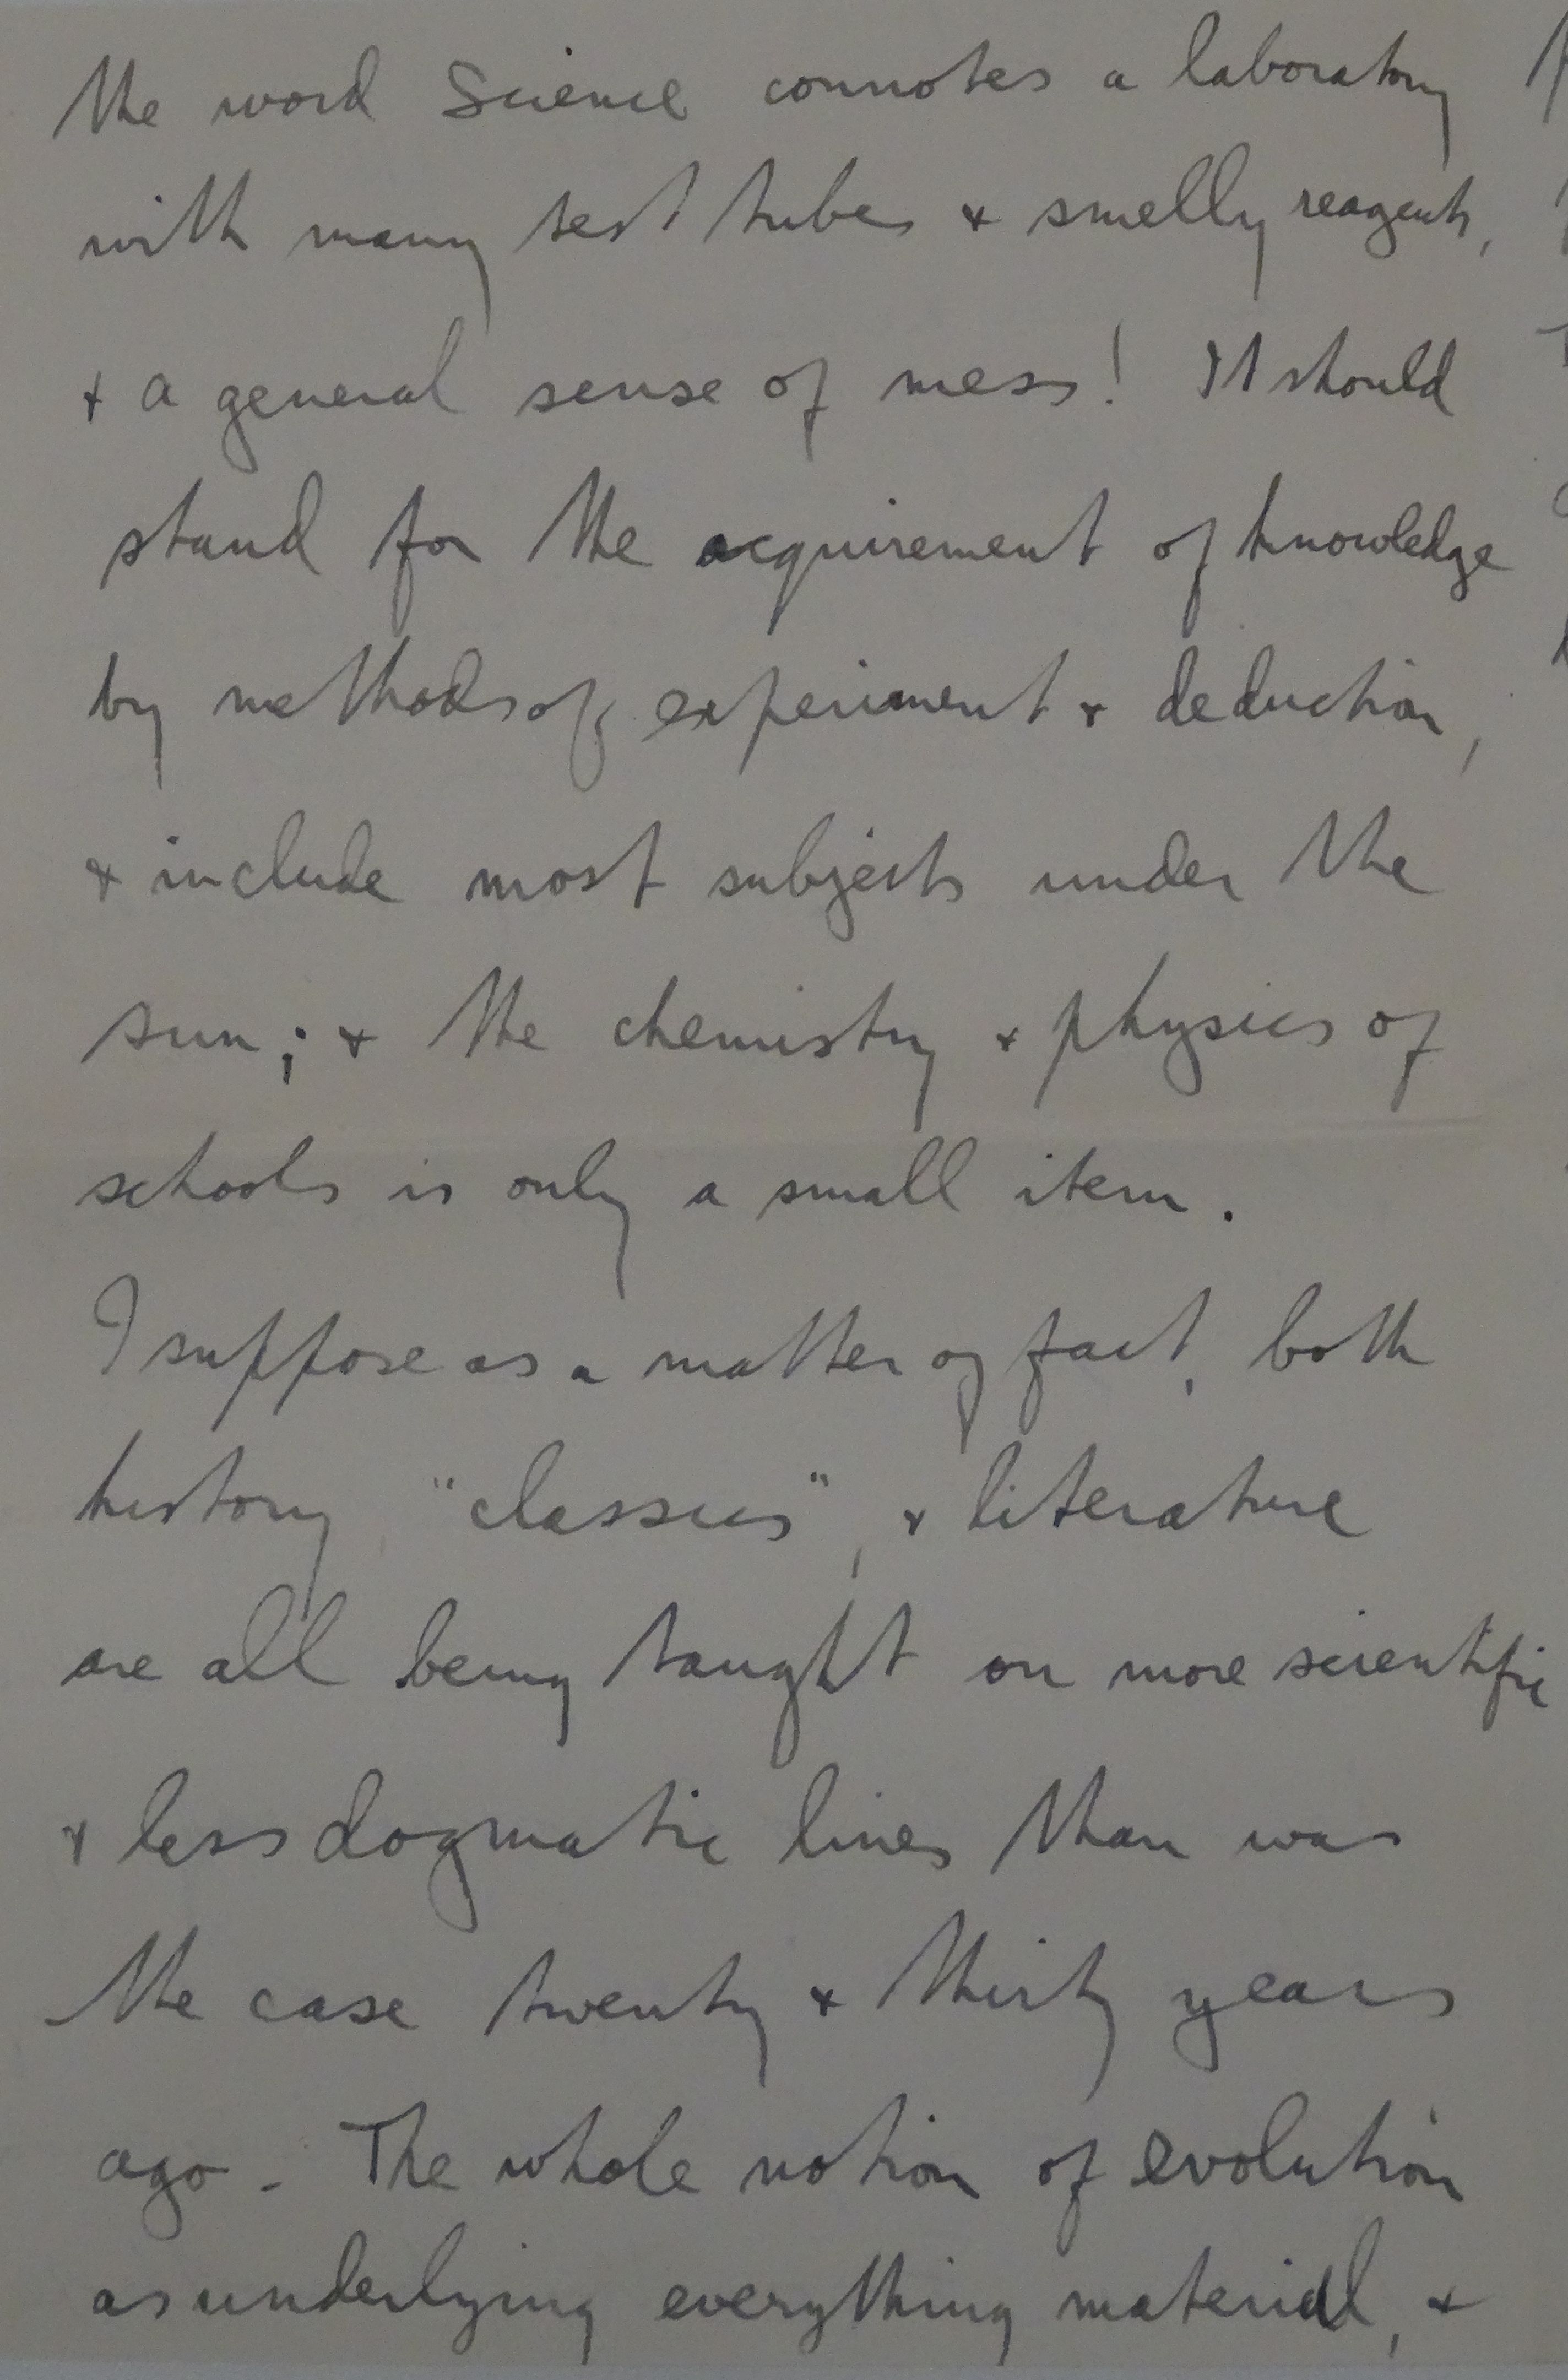 the word Science connotes a laboratory
with many test tubes & smelly reagents,
& a general sense of mess! It should
stand for the acquirement of knowledge
by methods of experiment & deduction,
& include most subjects under the
sun; & the chemistry & physics of
schools is only a small item.
I suppose as a matter of fact, both
history "classics", & literature
are all being taught on more scientific
& less dogmatic lines than was
the case twenty & thirty years
ago. The whole notion of evolution
as underlying everything material, &